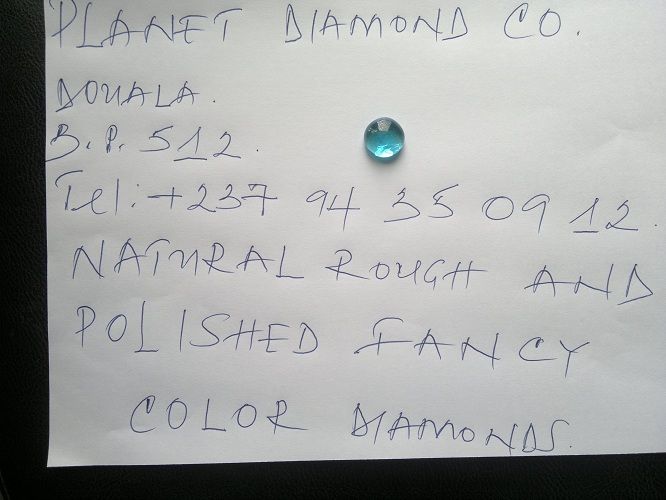 PLANET DIAMOND CO.
DOUALA.
B.P. 512.
Tel: +237 94 35 09 12.
NATURAL ROUGH AND
POLISHED FANCY
COLOR DIAMONDS.